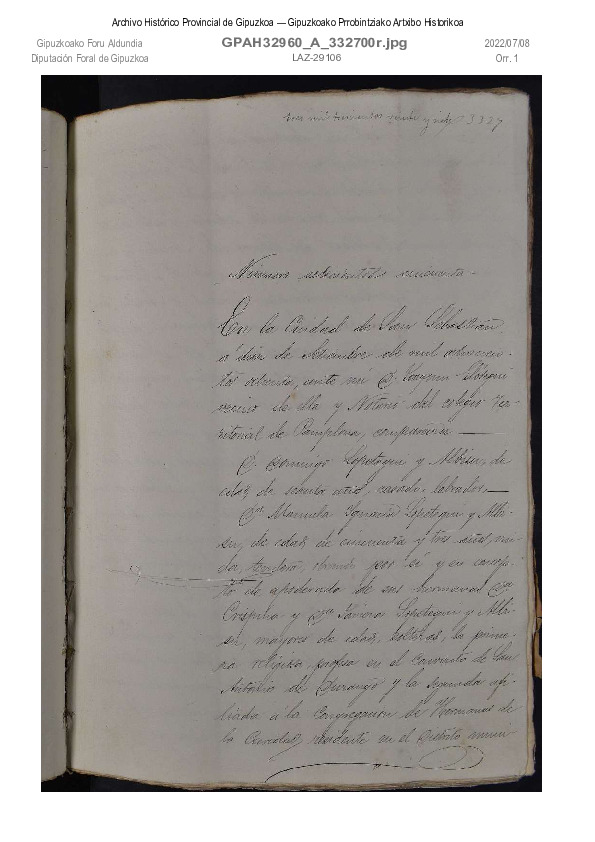 Archivo Histórico Provincial de Gipuzkoa — Gipuzkoako Prrobintziako Artxibo Historikoa
Gipuzkoako Foru Aldundia
Diputación Foral de Gipuzkoa
GPAH32960_A_332700r.jpg
LAZ-29106
2022/07/08
Orr. 1
tres mil 3327
Número setecientos cincuenta.
En la Ciudad de San Sebastián
a diez de de mil ochocien-
tos ochenta, ante mí D. Joaquín
vecino de ella y Notario del colegio Ter-
ritorial de Pamplona, comparecen
D. Domingo Lopetegui y Albisu, de
edad de sesenta años, casado, labrador.
Dª Manuela Ignacia Lopetegui y Albi-
su, de edad de cincuenta y tres años,
por sí y en concep-
to de apoderado de sus hermanas Dª
Crispina y Dª Lopetegui y Albi-
su, mayores de edad, solteras, la prime-
ra religiosa profesa en el Convento de San
Antonio de Durango y la segunda afi-
liada a la Congregación de Hermanas de
la Caridad, residente en el